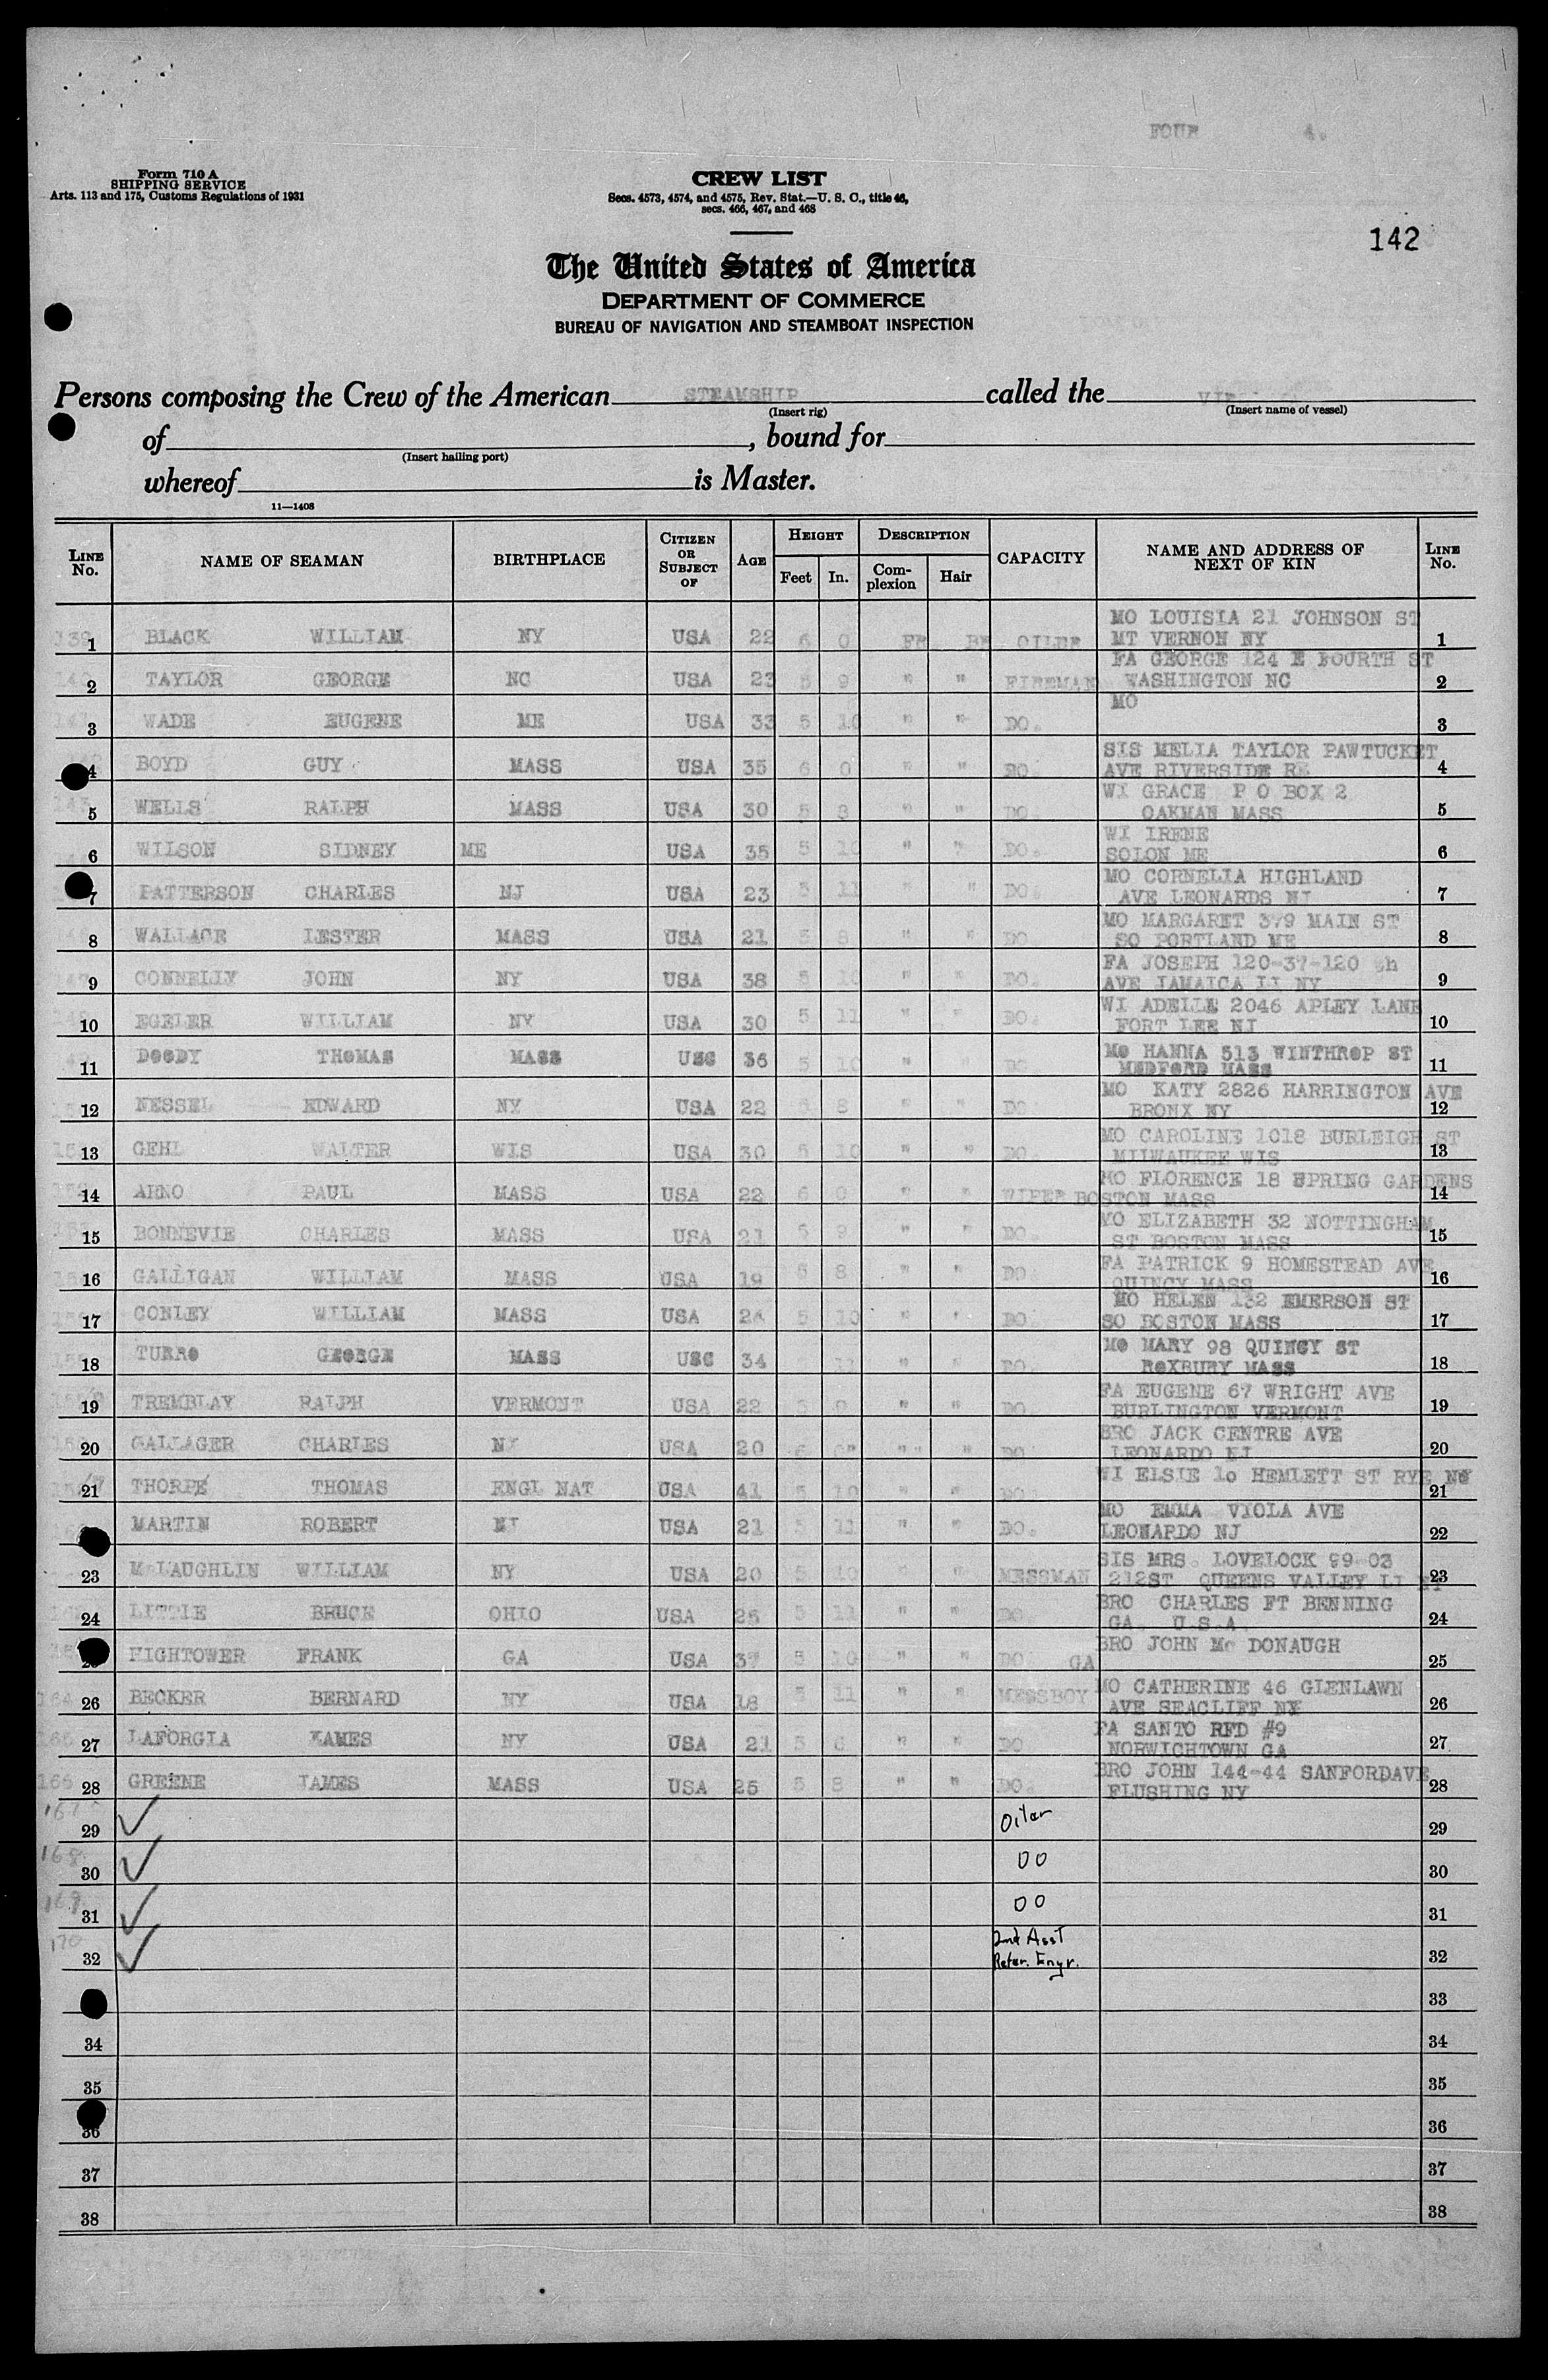 FOUR 4.
Form 710 A
SHIPPING SERVICE
Arts. 113 and 175, Customs Regulations of 1931
CREW LIST
Secs. 4573, 4574, and 4575, Rev. Stat.—U. S. C., title 46,
secs. 466, 467, and 468
142
The United States of America
DEPARTMENT OF COMMERCE
BUREAU OF NAVIGATION AND STEAMBOAT INSPECTION
Persons composing the Crew of the American STEAMSHIP called the
(Insert rig) (Insert name of vessel)
of , bound for
(Insert hailing port)
whereof is Master.
11—1408
LINE No. NAME OF SEAMAN BIRTHPLACE CITIZEN OR SUBJECT OF AGE HEIGHT Feet In. DESCRIPTION Complexion Hair CAPACITY NAME AND ADDRESS OF NEXT OF KIN LINE No.
1 BLACK WILLIAM NY USA 22 6 0 OILER MO LOUISIA 21 JOHNSON ST MT VERNON NY 1
2 TAYLOR GEORGE NC USA 23 5 9 " " FIREMAN FA GEORGE 124 E FOURTH ST WASHINGTON NC 2
3 WADE EUGENE ME USA 33 5 10 " " DO. MO 3
4 BOYD GUY MASS USA 35 6 0 " " DO. SIS MELIA TAYLOR PAWTUCKET AVE RIVERSIDE 4
5 WELLS RALPH MASS USA 30 5 8 " " DO. WI GRACE P O BOX 2 OAKMAN MASS 5
6 WILSON SIDNEY ME USA 35 5 10 " " DO. WI IRENE SOLON ME 6
7 PATTERSON CHARLES NJ USA 23 5 11 " " DO. MO CORNELIA HIGHLAND AVE LEONARDS NJ 7
8 WALLACE LESTER MASS USA 21 5 8 " " DO MO MARGARET 379 MAIN ST SO PORTLAND ME 8
9 CONNELLY JOHN NY USA 38 5 10 " " DO. FA JOSEPH 120-37-120 th AVE JAMAICA LI NY 9
10 EGELER WILLIAM NY USA 30 5 11 " " DO. WI ADELLE 2046 APLEY LANE FORT LEE NJ 10
11 DOODY THOMAS MASS USC 36 5 10 " " DO. MO HANNA 513 WINTHROP ST MEDFORD MASS 11
12 NESSEL EDWARD NY USA 22 5 8 " " DO MO KATY 2826 HARRINGTON AVE BRONX NY 12
13 GEHL WALTER WIS USA 30 5 10 " " DO. MO CAROLINE 1018 BURLEIGH ST MILWAUKEE WIS 13
14 ARNO PAUL MASS USA 22 6 0 " " WIPER MO FLORENCE 18 SPRING GARDENS BOSTON MASS 14
15 BONNEVIE CHARLES MASS USA 21 5 9 " " DO. MO ELIZABETH 32 NOTTINGHAM ST BOSTON MASS 15
16 GALLIGAN WILLIAM MASS USA 19 5 8 " " DO. FA PATRICK 9 HOMESTEAD AVE QUINCY MASS 16
17 CONLEY WILLIAM MASS USA 5 10 " " DO. MO HELEN 132 EMERSON ST SO BOSTON MASS 17
18 TURRO GEORGE MASS USC 34 11 " " DO. MO MARY 98 QUINCY ST ROXBURY MASS 18
19 TREMBLAY RALPH VERMONT USA 22 5 9 " " DO. FA EUGENE 67 WRIGHT AVE BURLINGTON VERMONT 19
20 GALLAGER CHARLES NJ USA 20 6 0" " " " DO BRO JACK CENTRE AVE LEONARDO NJ 20
21 THORPE THOMAS ENGL NAT USA 41 5 10 " " DO. WI ELSIE 10 HEMLETT ST RYE 21
MARTIN ROBERT NJ USA 21 5 11 " " DO. MO EMMA VIOLA AVE LEONARDO NJ 22
23 McLAUGHLIN WILLIAM NY USA 20 5 10 " " MESSMAN SIS MRS. LOVELOCK 99-03 212ST QUEENS VALLEY LI NY 23
24 LITTLE BRUCE OHIO USA 25 5 11 " " DO BRO CHARLES FT BENNING GA. U.S.A. 24
HIGHTOWER FRANK GA USA 37 5 10 " " DO BRO JOHN Mc DONAUGH GA 25
164 26 BECKER BERNARD NY USA 18 5 11 " " MESSBOY MO CATHERINE 46 GLENLAWN AVE SEACLIFF NY 26
165 27 LAFORGIA JAMES NY USA 21 5 6 " " DO FA SANTO RFD #9 NORWICHTOWN GA 27
166 28 GREENE JAMES MASS USA 25 5 8 " " DO. BRO JOHN 144-44 SANFORDAVE FLUSHING NY 28
167 29 ✓ Oiler 29
168 30 ✓ DO 30
169 31 ✓ DO 31
170 32 ✓ 2nd Asst Refer. Engr. 32
33
34 34
35 35
36 36
37 37
38 38